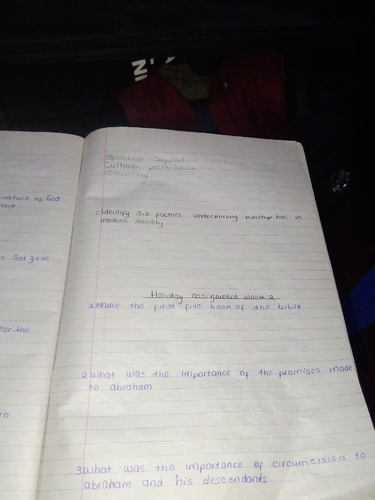 nature of God
s God gave
for the
Spiritual Support
Cultural preservation
c)Identify six factors undermining kinship ties in
modern society
Holiday Assignment Week 2
1.Name the first five book of the bible
2.What was the importance of the promises made
to abraham
3.What was the importance of circumcision to
abraham and his descendants